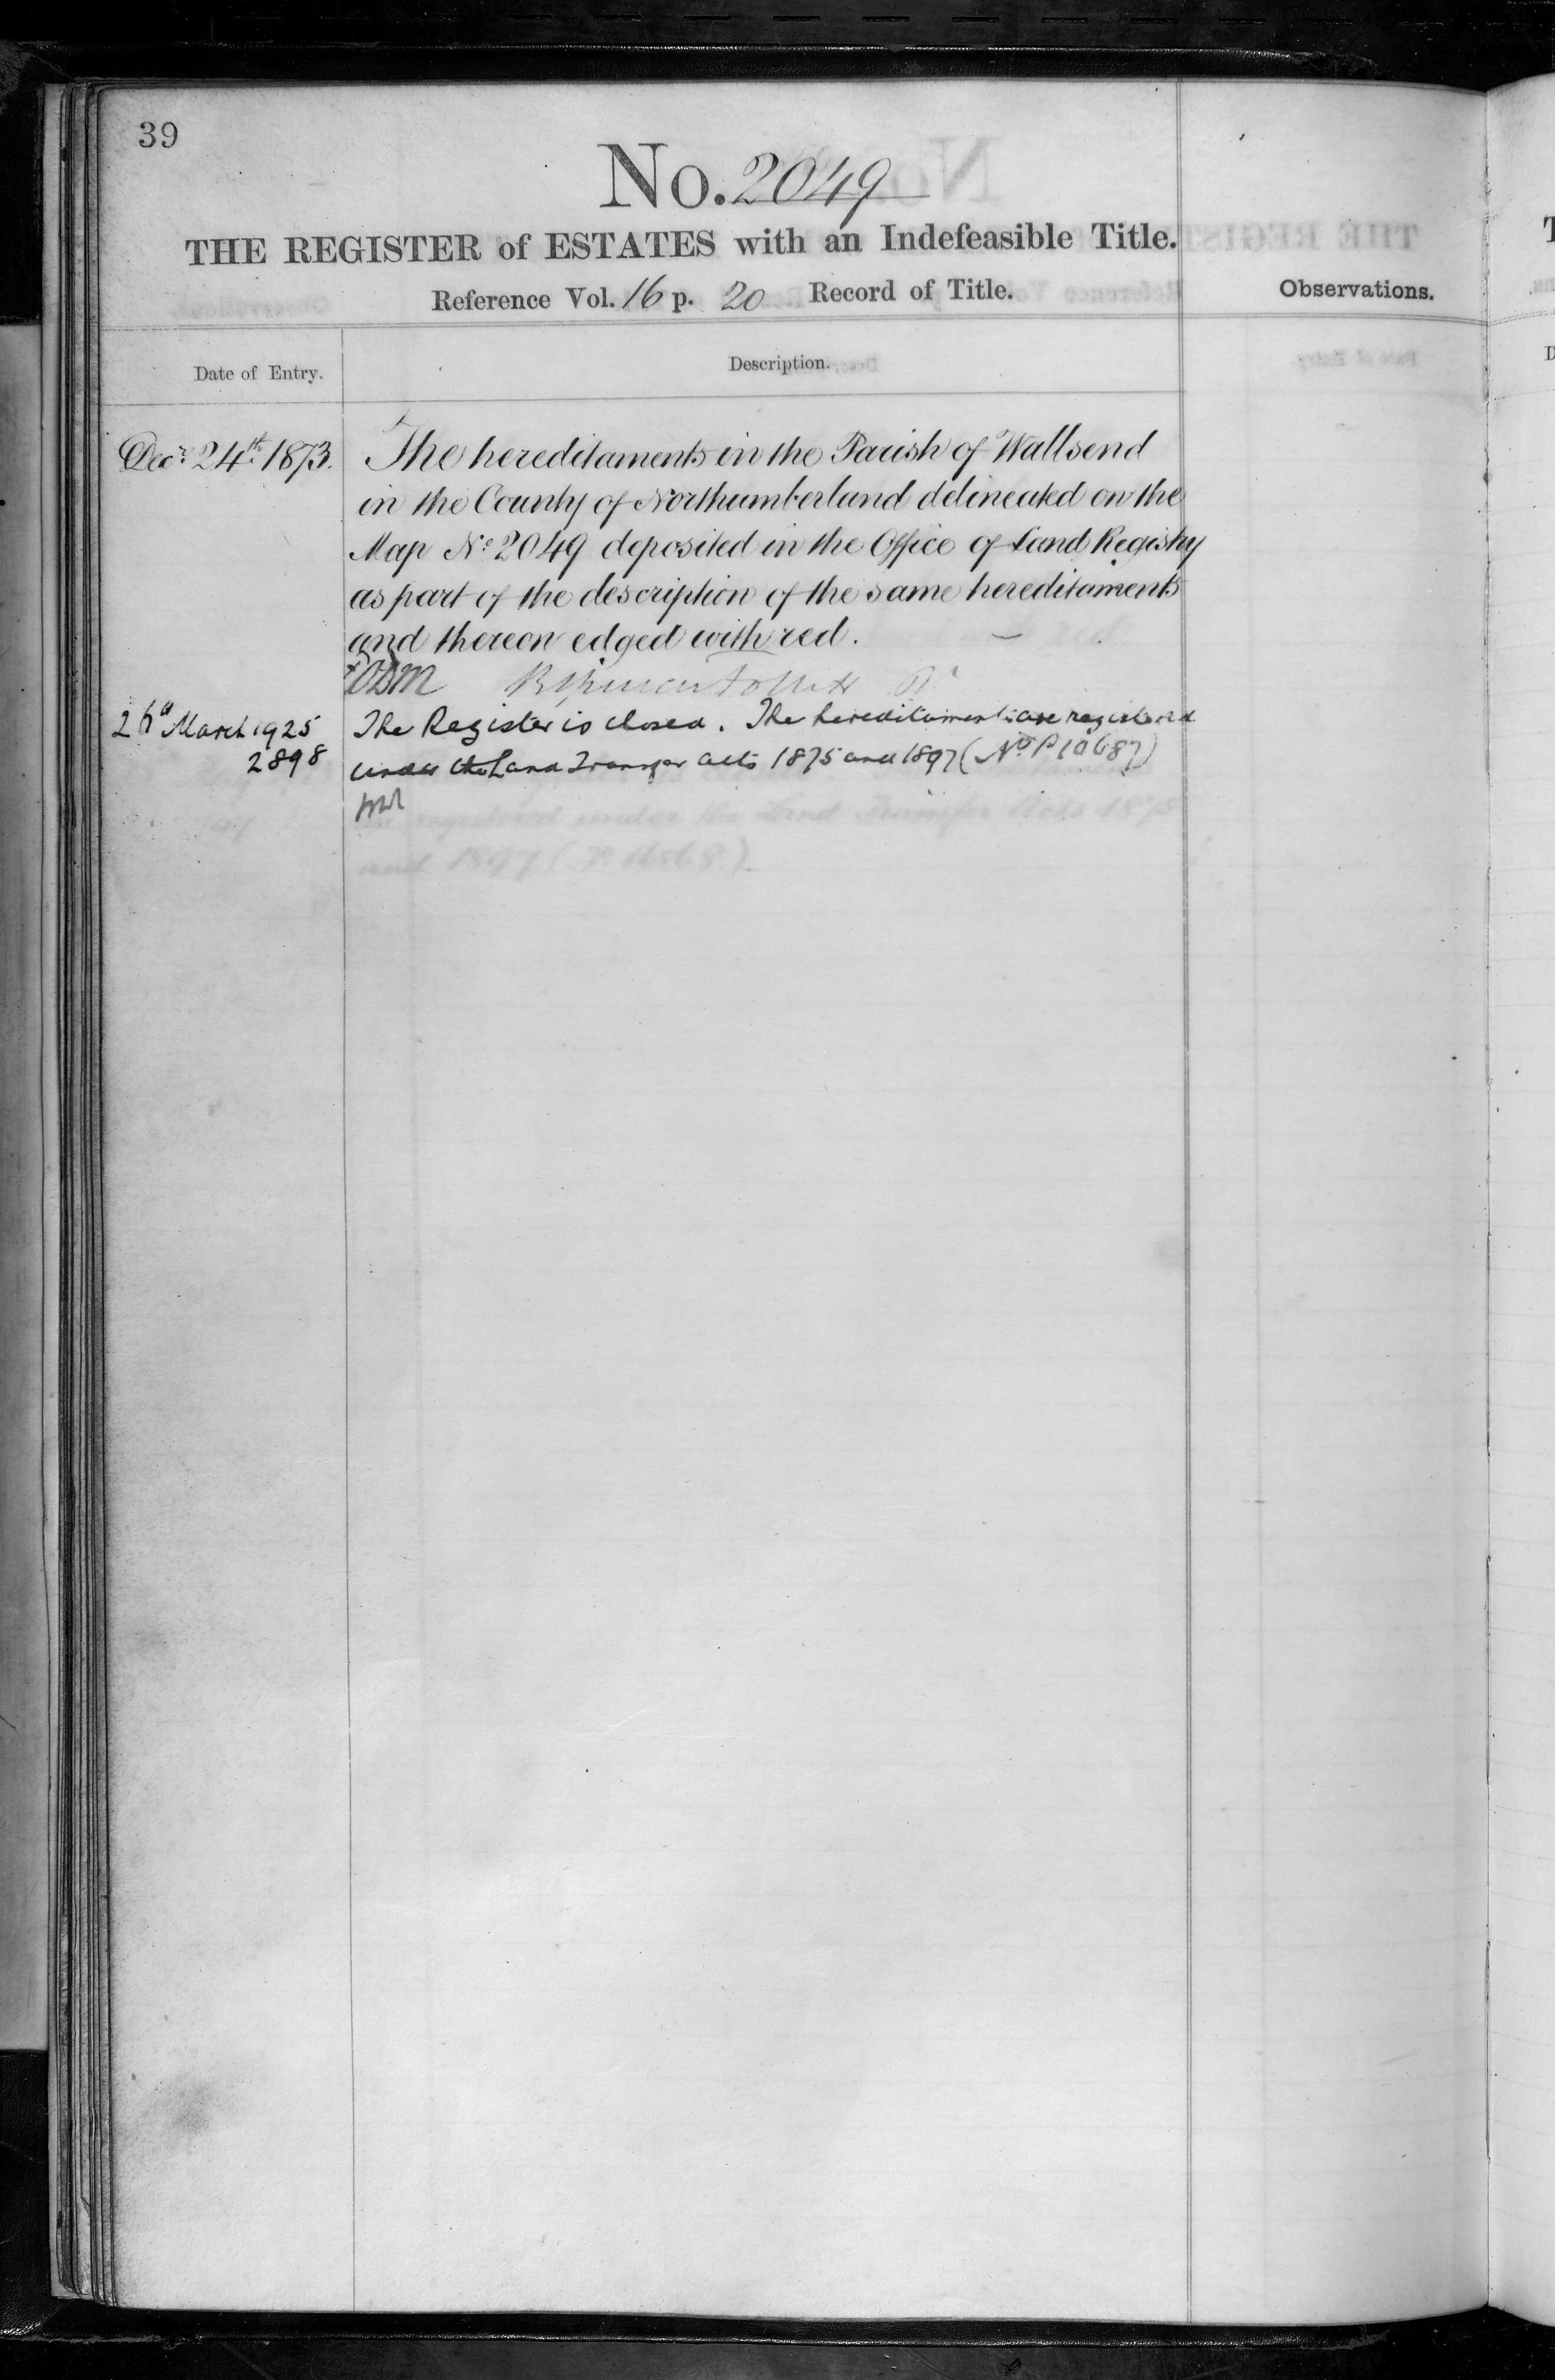 39
No. 2049
THE REGISTER of ESTATES with an Indefeasible Title.
Reference Vol. 16 p. 20 Record of Title.
Observations.
Date of Entry.
Description.
Decr. 24th. 1873.
The hereditaments in the Parish of Wallsend
in the County of Northumberland delineated on the
Map No. 2049 deposited in the Office of Land Registry
as part of the description of the same hereditaments
and thereon edged with red.
26th March 1925
2898
The Register is closed. The hereditaments are registered
under the Land Transfer Acts 1875 and 1897 (No. P 10687)